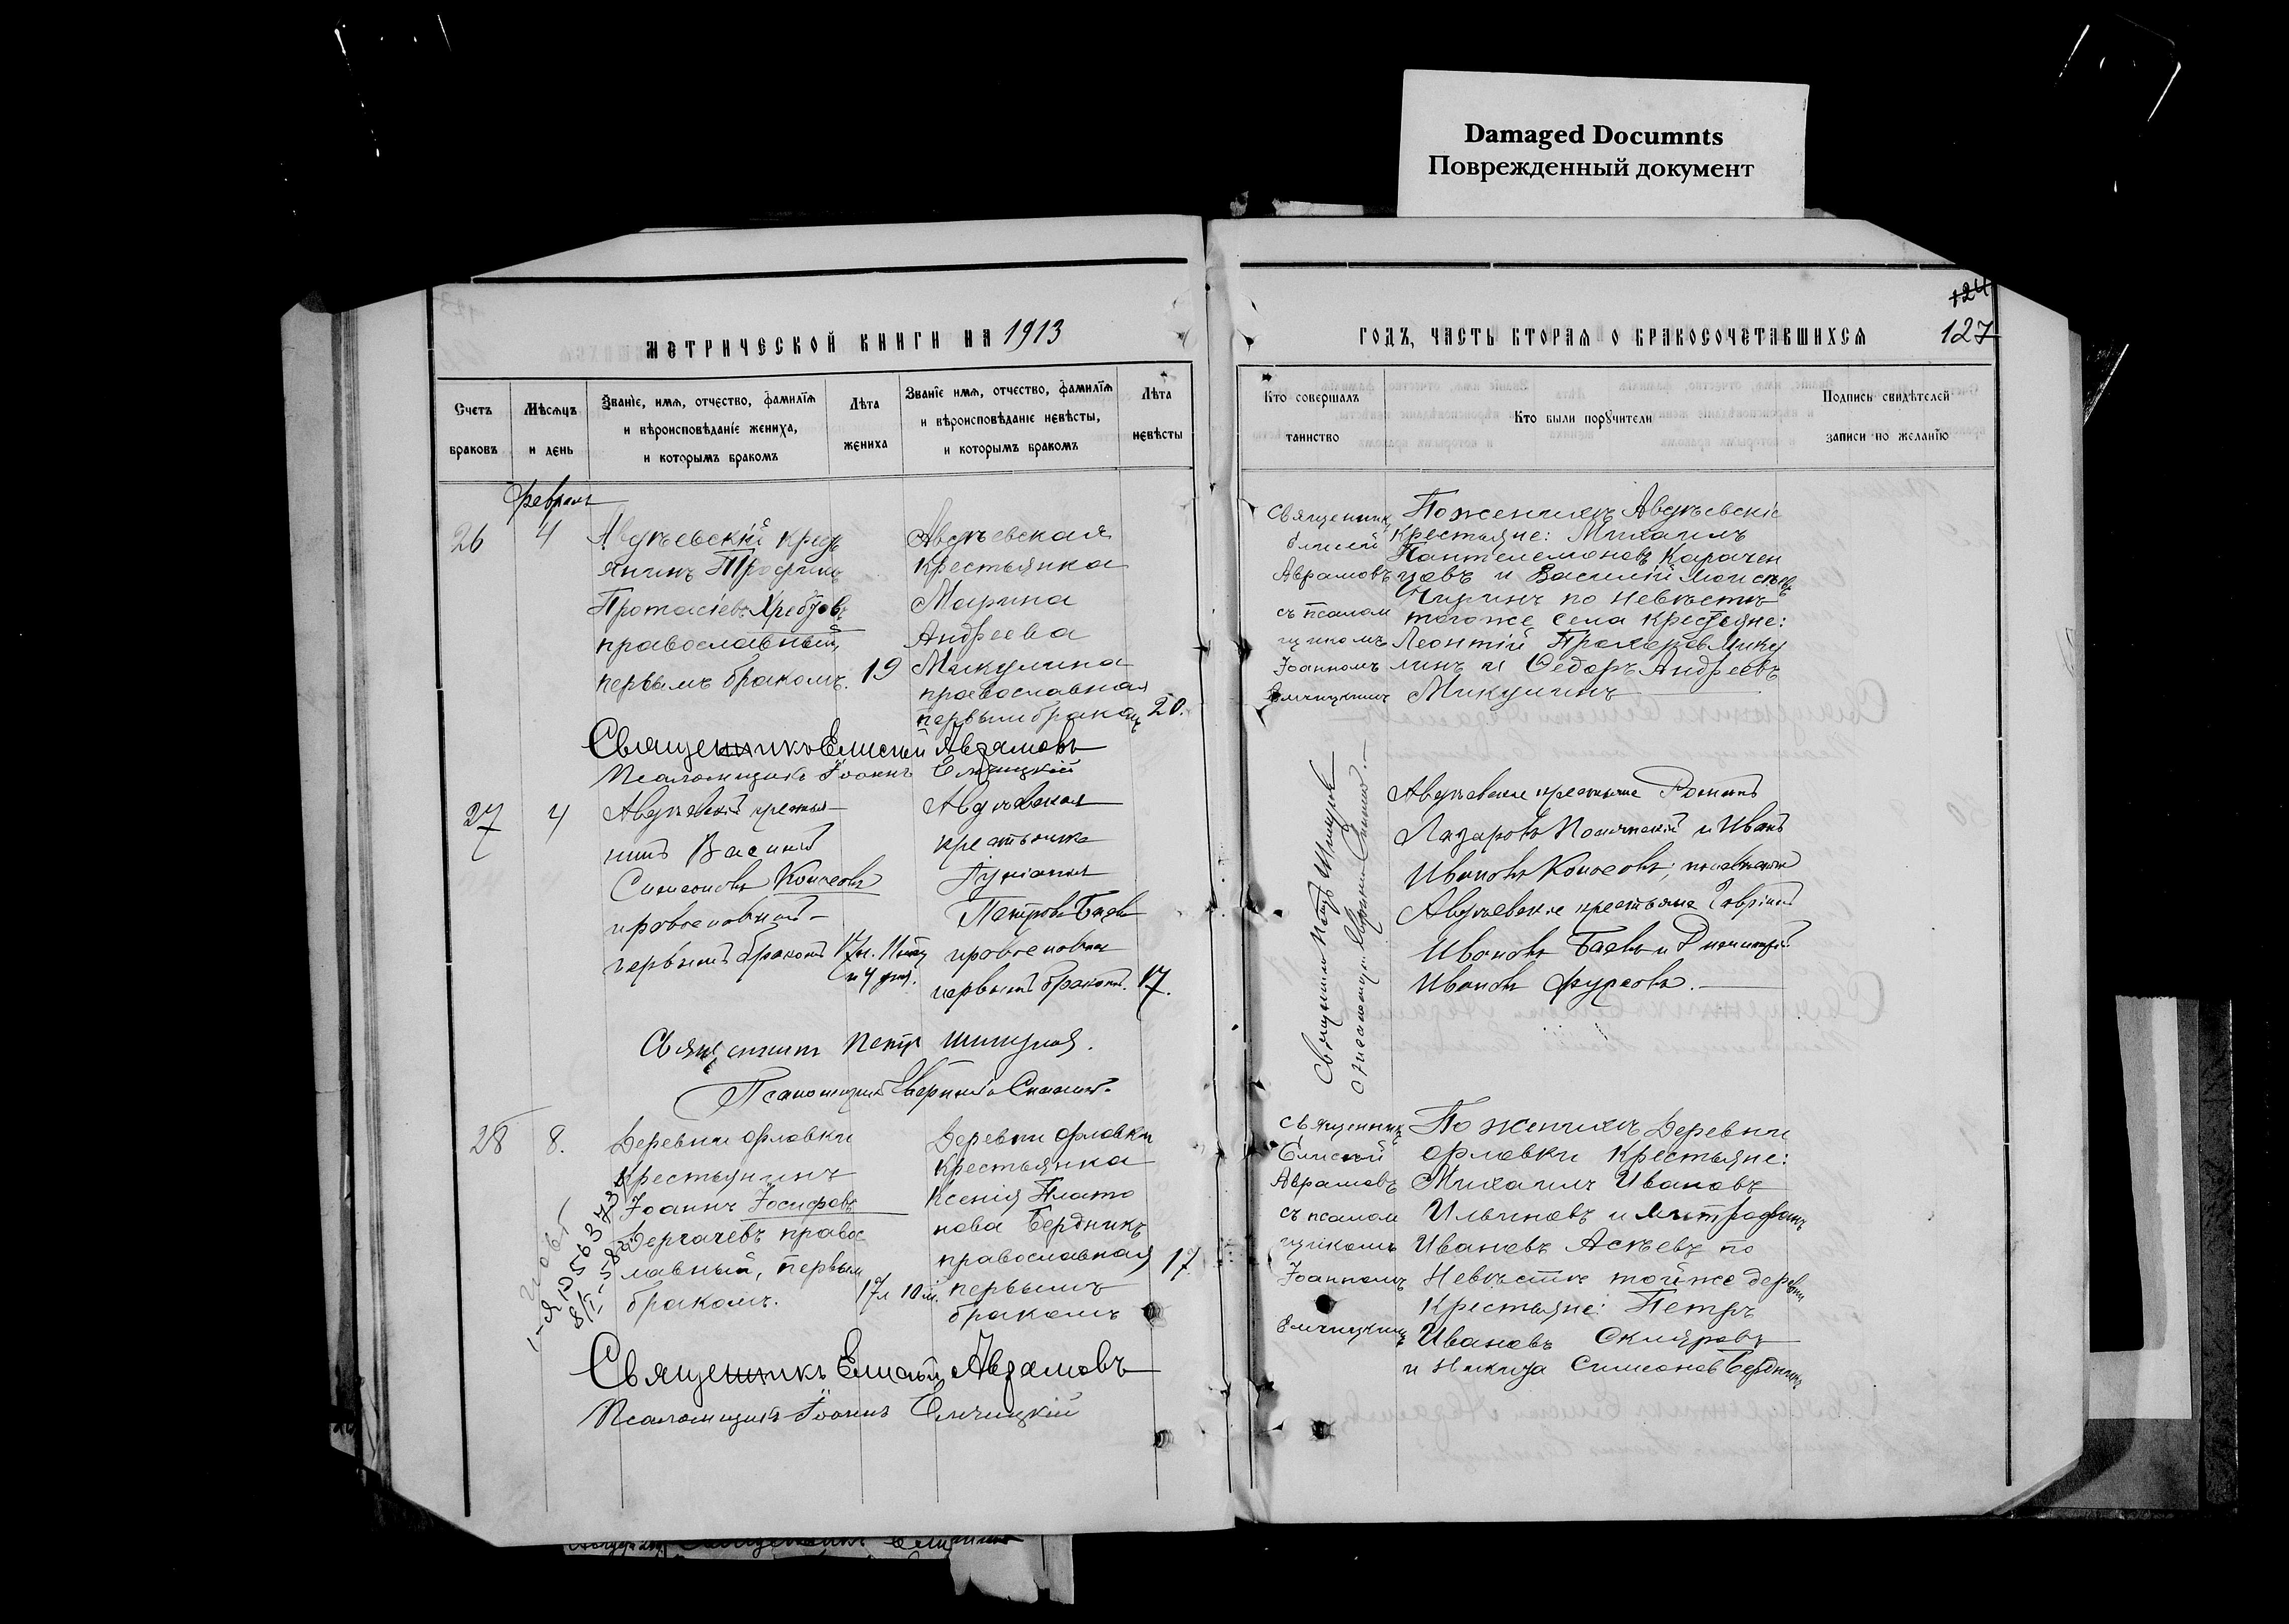 Damaged Documnts
Поврежденный документ
124
127
МЕТРИЧЕСКОЙ КНИГИ НА 1913
ГОДЪ, ЧАСТЬ ВТОРАЯ О БРАКОСОЧЕТАВШИХСЯ
Счетъ браковъ
Мѣсяцъ и день
Званіе, имя, отчество, фамилія и вѣроисповѣданіе жениха, и которымъ бракомъ
Лѣта жениха
Званіе имя, отчество, фамилія и вѣроисповѣданіе невѣсты, и которымъ бракомъ
Лѣта невѣсты
Кто совершалъ таинство
Кто были поручители
Подпись свидѣтелей записи по желанію
февраль
26
4
Авдѣевскій крес
янинъ Трофимъ
Протасіевъ
православный,
первымъ бракомъ.
19
Авдѣевская
Крестьянка
Марина
Андреева
Микулина
православная
первым бракомъ
20.
Священникъ
Елисей
Аврамовъ
съ псалом
щикомъ
Іоанномъ
По женихѣ Авдѣевскіе
крестьяне: Михаилъ
Пантелемоновъ Карачен
цовъ и Василій
по невѣстѣ
того же села крестьяне:
Леонтій Прохоровъ Мику
линъ и Ѳедоръ Андреевъ
Микулинъ
Священникъ Елисей Аврамовъ
Псаломщикъ Іоаннъ
27
4
Авдѣевскій крестья
нинъ Василій
Симеоновъ
православный
первымъ бракомъ
Авдѣевская
крестьянка
Петрова Баева
православная
первымъ бракомъ.
17.
Авдѣевские крестьяне Романъ
Лазаровъ и Иванъ
Ивановъ
Авдѣевские крестьяне Гавріилъ
Ивановъ Баевъ и Димитрій
Ивановъ Фурсовъ.
Священникъ Петръ
Псаломщикъ
28
8.
Деревни Орловки
Крестьянинъ
Іоаннъ Іосифовъ
Дергачевъ правос
лавный, первым
бракомъ.
17л 10м.
Деревни Орловки
Крестьянка
Ксенія Плато
нова Бердникъ
православная
первымъ
бракомъ
17.
Священникъ
Елисей
Аврамовъ
съ псалом
щикомъ
Іоанномъ
По женихѣ Деревни
Орловки Крестьяне:
Михаилъ Ивановъ
Ильиновъ и Митрофанъ
Ивановъ по
Невѣстѣ той же деревни
Крестьяне: Петръ
Ивановъ Скляровъ
и Никита Симеонов Бердникъ
Священникъ Елисей Аврамовъ
Псаломщикъ Іоаннъ